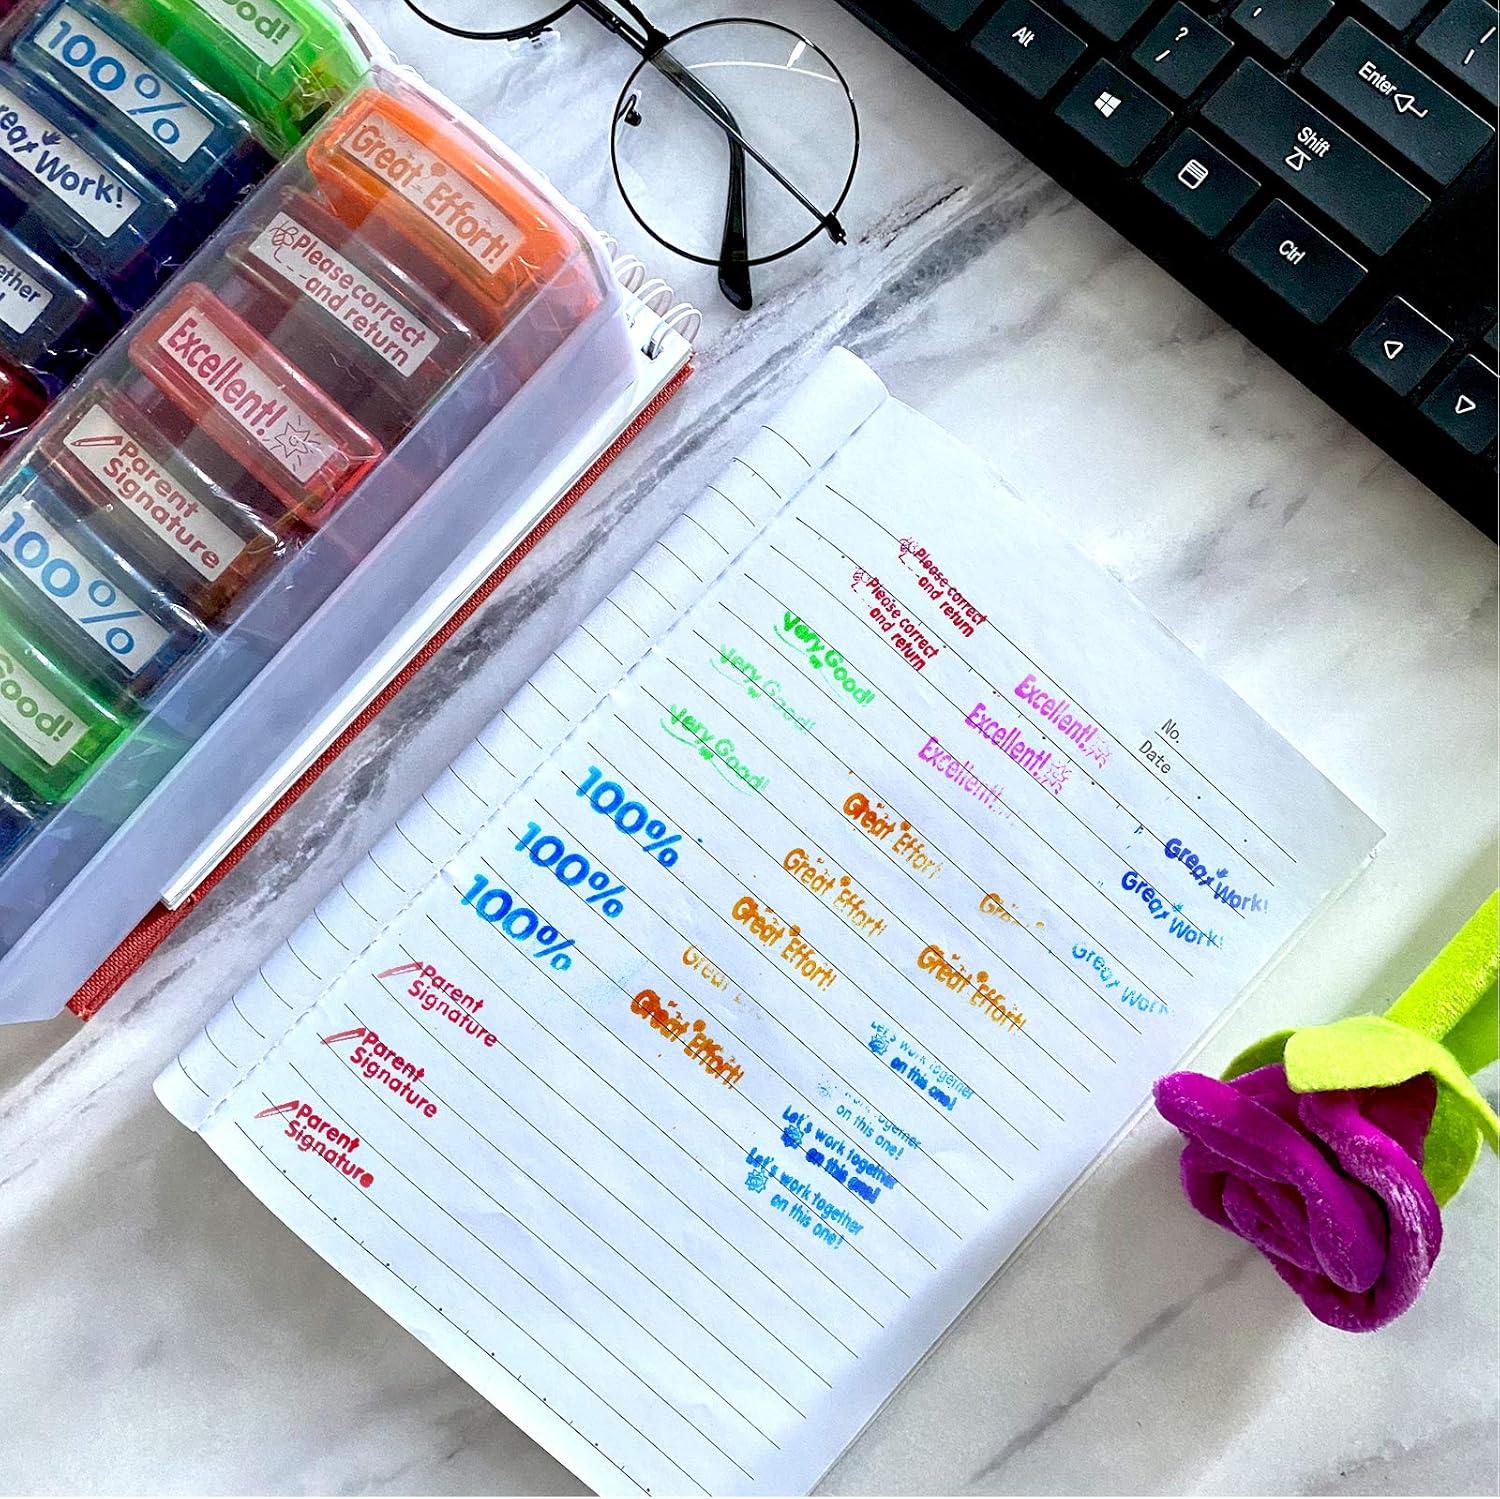 Good!
100%
Great Work!
Great Effort!
Please correct
and return
Excellent!
Parent
Signature
100%
Good!
Alt
?
/
Enter
Shift
Ctrl
No.
Date
Please correct
and return
Please correct
and return
Very Good!
Very Good!
Very Good!
Excellent!
Excellent!
Excellent!
100%
100%
100%
Great Effort!
Great Effort!
Great Effort!
Great
Great Effort!
Great Effort!
Great Work!
Great Work!
Great Work
Parent
Signature
Parent
Signature
Parent
Signature
Let's work together
on this one!
work together
on this one!
Let's work together
on this one!
Let's work together
on this one!